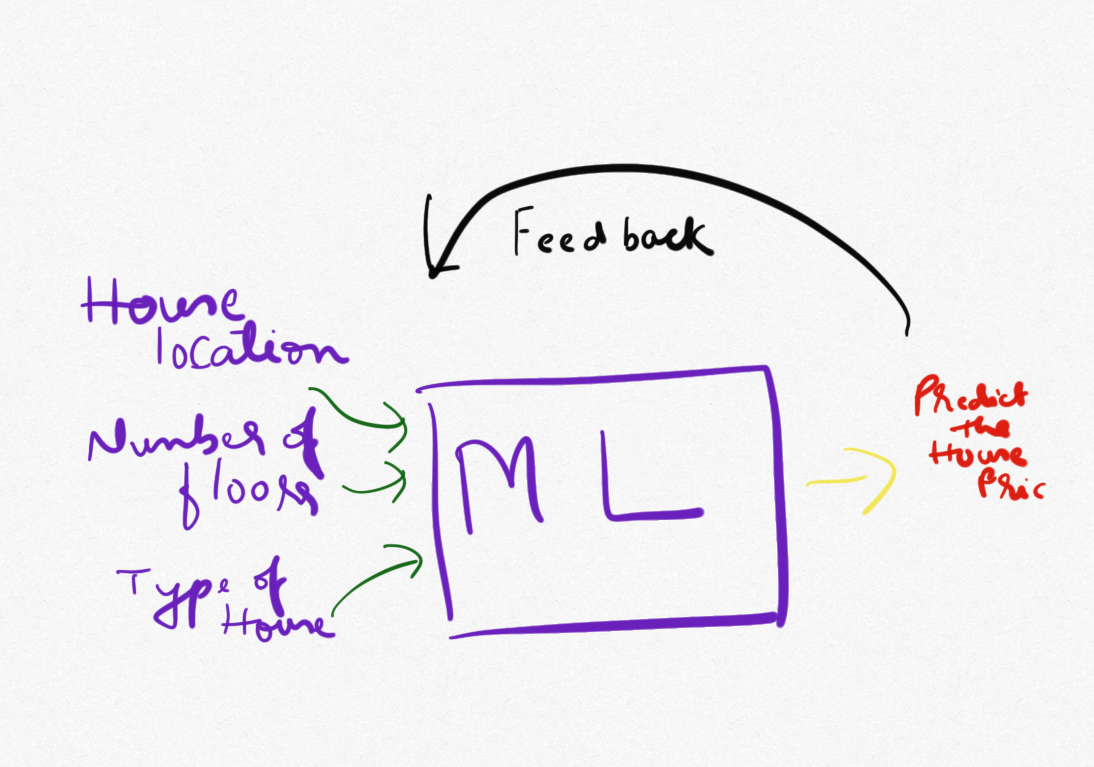 Feedback
House
location
Number of
floors
Type of
House
ML
Predict
the
House
Pric